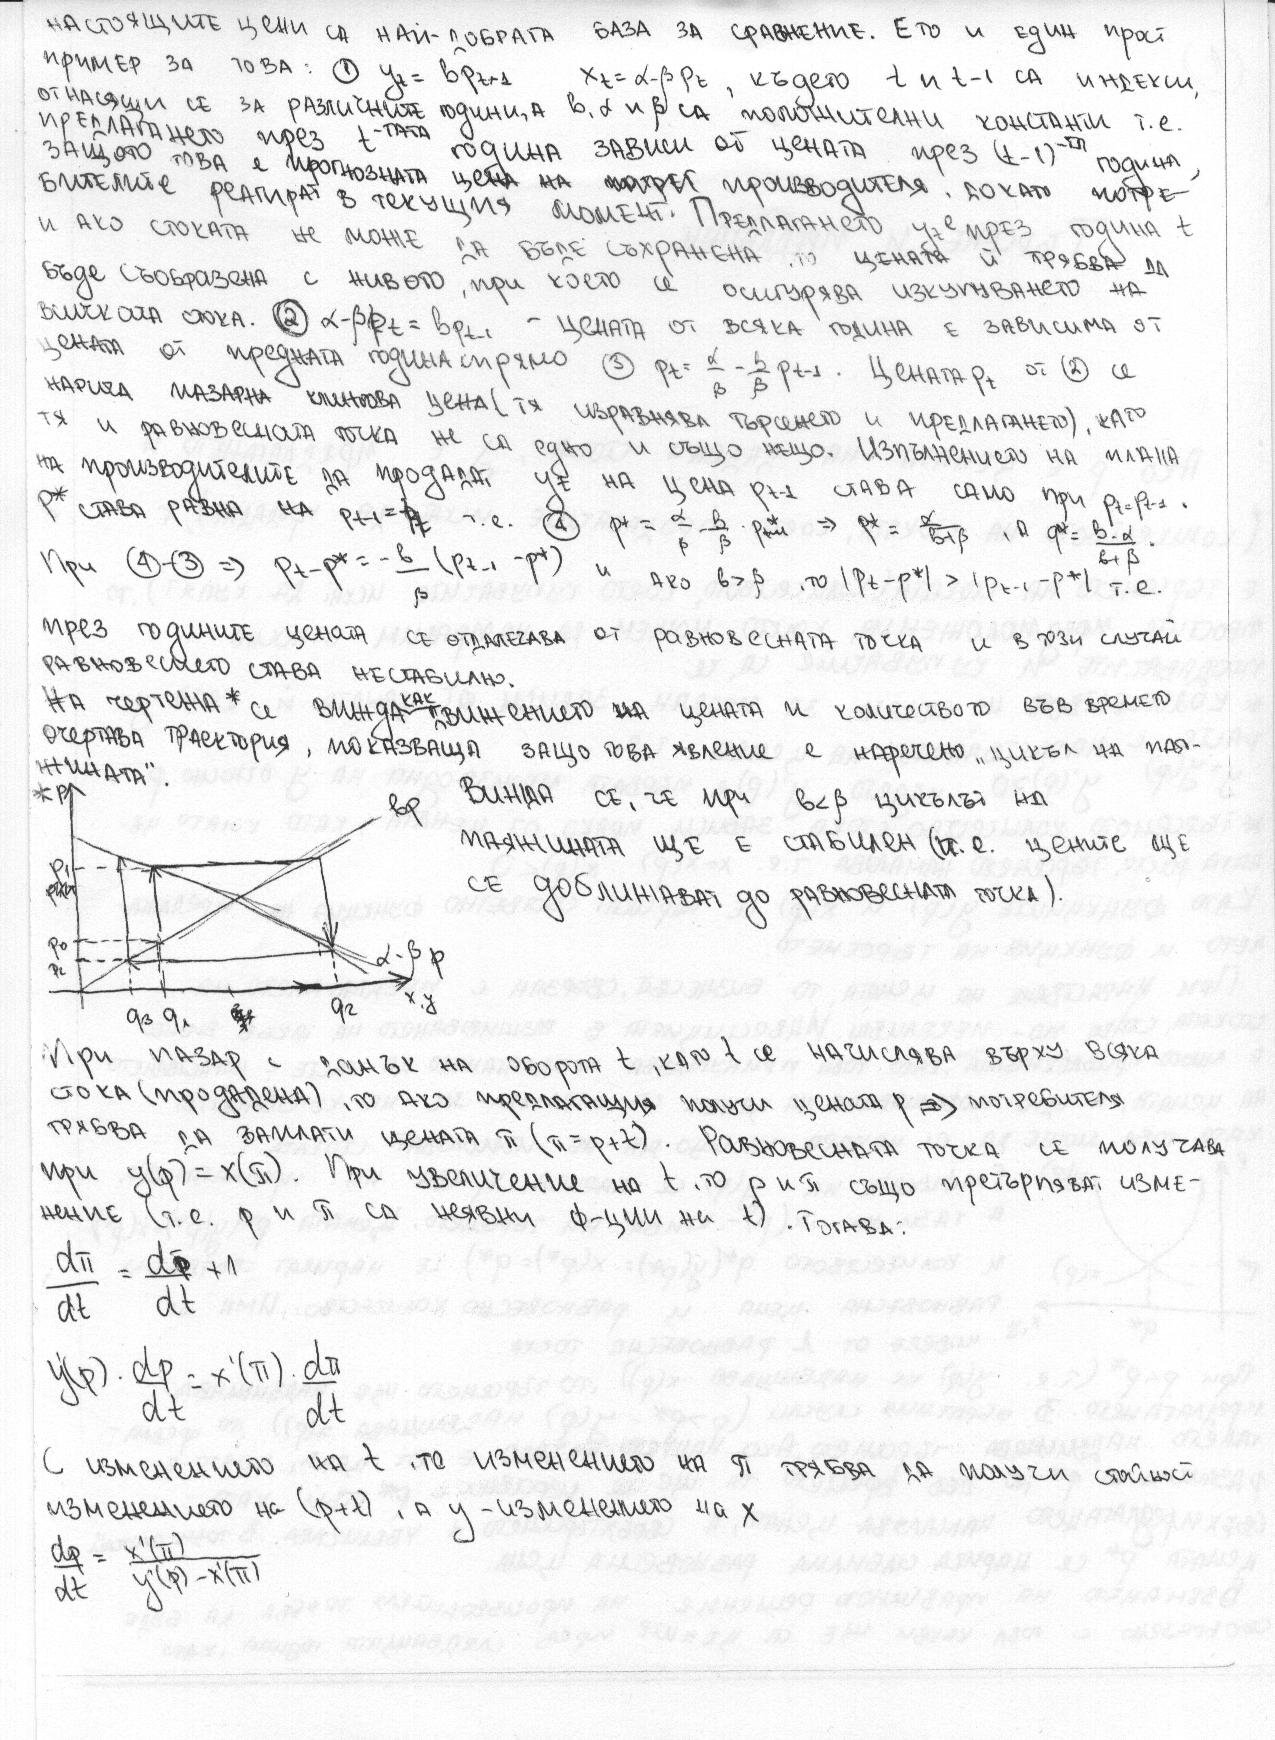 настоящите цени са най-добрата база за сравнение. Ето и един прост
пример за това: ① yt = bpt-1 xt = α-βpt, където t и t-1 са индекси,
отнасящи се за различните години, а b, α и β са положителни константи т.е.
предлагането през t-тата година зависи от цената през (t-1)-та година,
защото това е прогнозната цена на производителя. докато потре-
бителите реагират в текущия момент. Предлагането yt е през година t
и ако стоката не може да бъде съхранена, то цената й трябва да
бъде съобразена с нивото, при което се осигурява изкупуването на
всичката стока. ② α-βpt = bpt-1 - цената от всяка година е зависима от
цената от предната година спрямо ③ pt = α/β - b/β pt-1. Цената pt от ② се
нарича пазарна клингова цена (тя изравнява търсенето и предлагането), като
тя и равновесната точка не са едно и също нещо. Изпълнението на плана
на производителите да продадат yt на цена pt-1 става само при pt=pt-1.
p* става равна на pt-1=pt т.е. ④ p* = α/β - b/β · p* => p* = α/b+β, а q* = b·α/b+β.
При ④-③ => pt-p* = -b/β (pt-1-p*) и ако b>β, то |pt-p*| > |pt-1-p*| т.е.
през годините цената се отдалечава от равновесната точка и в този случай
равновесието става нестабилно.
На чертежа* се вижда как движението на цената и количеството във времето
очертава траектория, показваща защо това явление е наречено „цикъл на пая-
жината".
*p
bp
Вижда се, че при b<β цикълът на
паяжината ще е стабилен (т.е. цените ще
се доближават до равновесната точка).
p1
p0
p2
α-βp
x,y
q3 q1 q2
При пазар с данък на оборота t, като t се начислява върху всяка
стока (продадена), то ако предлагащия получи цената p => потребителя
трябва да заплати цената π (π=p+t). Равновесната точка се получава
при y(p)=x(π). При увеличение на t, то p и π също претърпяват изме-
нение (т.е. p и π са неявни ф-ции на t). Тогава:
dπ/dt = dp/dt +1
y'(p) · dp/dt = x'(π) · dπ/dt
С изменението на t, то изменението на π трябва да получи стойност
изменението на (p+t), а y - изменението на x
dp/dt = x'(π)/y'(p)-x'(π)